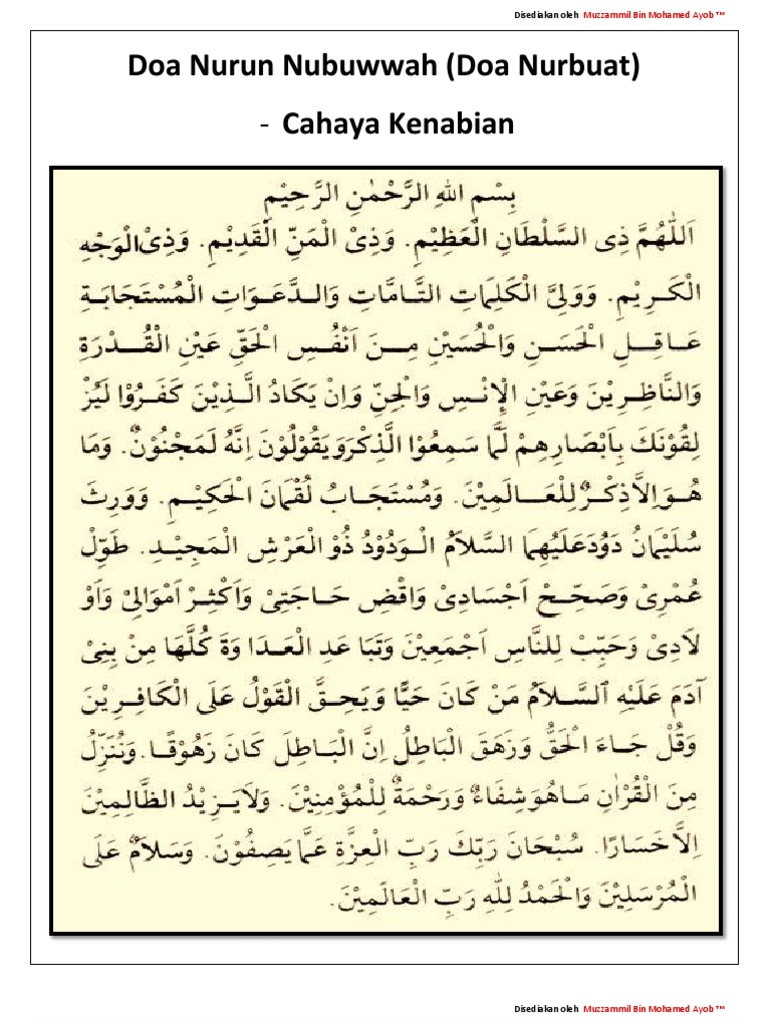 Disediakan oleh Muzzammil Bin Mohamed Ayob ™
Doa Nurun Nubuwwah (Doa Nurbuat)
- Cahaya Kenabian
بِسْمِ اللهِ الرَّحْمٰنِ الرَّحِيْمِ
اَللّٰهُمَّ ذِى السَّلْطَانِ الْعَظِيْمِ. وَذِىْ الْمَنِّ الْقَدِيْمِ. وَذِىْ الْوَجْهِ
الْكَرِيْمِ. وَوَلِىَّ الْكَلِمَاتِ التَّامَّاتِ وَالدَّعَوَاتِ الْمُسْتَجَابَةِ
عَاقِلِ الْحَسَنِ وَالْحُسَيْنِ مِنَ اَنْفُسِ الْحَقِّ عَيْنِ الْقُدْرَةِ
وَالنَّاظِرِيْنَ وَعَيْنِ الْإِنْسِ وَالْجِنِّ وَاِنْ يَكَادُ الَّذِيْنَ كَفَرُوْا لَيُزْ
لِقُوْنَكَ بِاَبْصَارِهِمْ لَمَّا سَمِعُوْا الذِّكْرَ وَيَقُوْلُوْنَ اِنَّهُ لَمَجْنُوْنٌ. وَمَا
هُوَ اِلاَّ ذِكْرٌ لِلْعَالَمِيْنَ. وَمُسْتَجَابُ لُقْمَانَ الْحَكِيْمِ. وَوَرِثَ
سُلَيْمَانُ دَوُدَ عَلَيْهِمَا السَّلاَمُ الْوَدُوْدُ ذُوْ الْعَرْشِ الْمَجِيْدِ. طَوِّلْ
عُمْرِىْ وَصَحِّحْ اَجْسَادِىْ وَاقْضِ حَاجَتِىْ وَاَكْثِرْ اَمْوَالِىْ وَاَوْ
لَادِىْ وَحَبِّبْ لِلنَّاسِ اَجْمَعِيْنَ وَتَبَا عَدِ الْعَدَا وَةَ كُلَّهَا مِنْ بَنِىْ
آدَمَ عَلَيْهِ السَّلاَمُ مَنْ كَانَ حَيًّا وَيَحِقَّ الْقَوْلُ عَلَى الْكَافِرِيْنَ
وَقُلْ جَاءَ الْحَقُّ وَزَهَقَ الْبَاطِلُ اِنَّ الْبَاطِلَ كَانَ زَهُوْقًا. وَنُنَزِّلُ
مِنَ الْقُرْاٰنِ مَاهُوَ شِفَاءٌ وَرَحْمَةٌ لِلْمُؤْمِنِيْنَ. وَلاَ يَزِيْدُ الظَّالِمِيْنَ
اِلاَّ خَسَارًا. سُبْحَانَ رَبِّكَ رَبِّ الْعِزَّةِ عَمَّا يَصِفُوْنَ. وَسَلاَمٌ عَلَى
الْمُرْسَلِيْنَ وَالْحَمْدُ لِلّٰهِ رَبِّ الْعَالَمِيْنَ.
Disediakan oleh Muzzammil Bin Mohamed Ayob ™